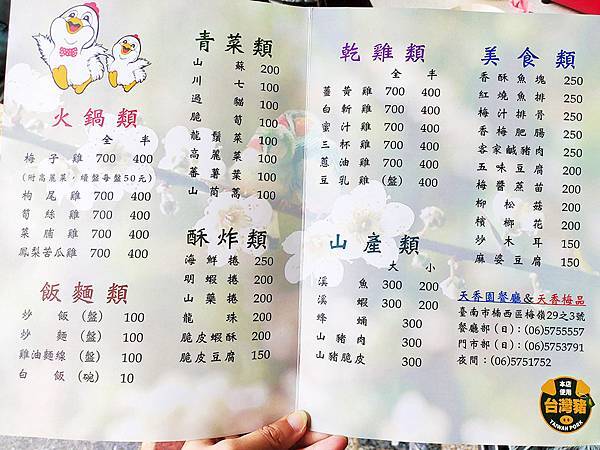 火鍋類
全 半
梅子雞 700 400
(附高麗菜,續盤每盤50元)
枸尾雞 700 400
筍絲雞 700 400
菜脯雞 700 400
鳳梨苦瓜雞 700 400
飯麵類
炒飯(盤) 100
炒麵(盤) 100
雞油麵線(盤) 100
白飯(碗) 10
青菜類
山蘇 200
川七 200
過貓 200
脆筍 200
龍鬚菜 200
高麗菜 200
番薯葉 200
山茼蒿 200
酥炸類
海鮮捲 250
明蝦捲 200
山藥捲 200
龍珠 200
脆皮蝦酥 200
脆皮豆腐 150
乾雞類
全 半
薑黃雞 700 400
白斬雞 700 400
蜜汁雞 700 400
三杯雞 700 400
蔥油雞 700 400
豆乳雞(盤) 400
山產類
大 小
溪魚 300 200
溪蝦 300 200
蜂蛹 300
山豬肉 300
山豬脆皮 300
美食類
香酥魚塊 250
紅燒魚排 250
梅汁排骨 250
香梅肥腸 250
客家鹹豬肉 250
五味豆腐 200
梅醬蒸苗 200
柳松菇 200
檳榔花 200
炒木耳 150
麻婆豆腐 150
天香園餐廳&天香梅品
臺南市楠西區梅嶺29之3號
餐廳部(日):(06)5755557
門市部(日):(06)5753791
夜間:(06)5751752
本店
使用
台灣豬
TAIWAN PORK